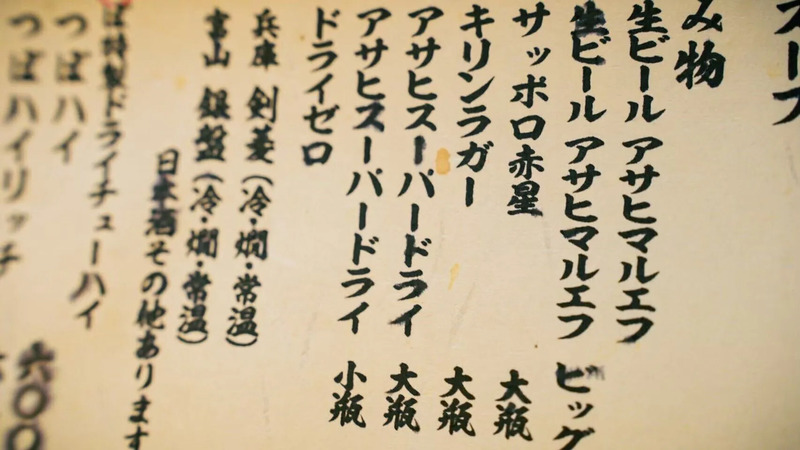 スープ
み物
生ビール アサヒマルエフ
生ビール アサヒマルエフ ビッグ
サッポロ赤星 大瓶
キリンラガー 大瓶
アサヒスーパードライ 大瓶
アサヒスーパードライ 小瓶
ドライゼロ
兵庫 剣菱(冷・燗・常温)
富山 銀盤(冷・燗・常温)
日本酒その他あります
ば特製ドライチューハイ
つばハイ 六〇〇
つばハイリッチ